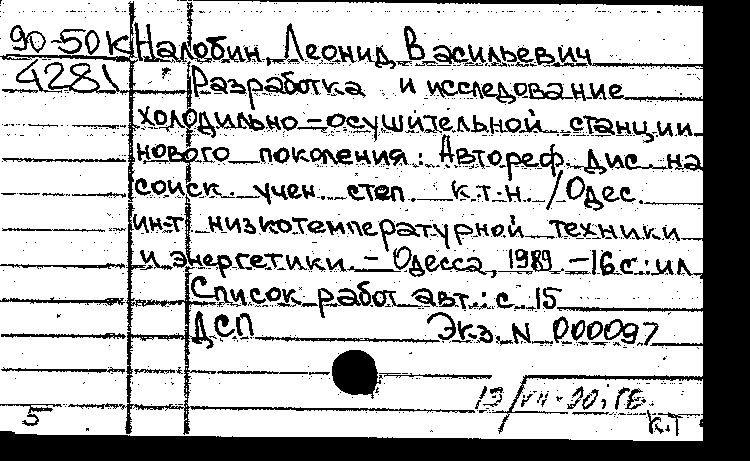 90-50К Налобин, Леонид Васильевич
4281 Разработка и исследование
холодильно-осушительной станции
нового поколения: Автореф. дис. на
соиск. учен. степ. к.т.н. /Одес.
ин-т низкотемпературной техники
и энергетики. - Одесса, 1989. -16 с.: ил.
Список работ авт.: с. 15
ДСП Экз. N 000097
13/VII-90
5 к.т